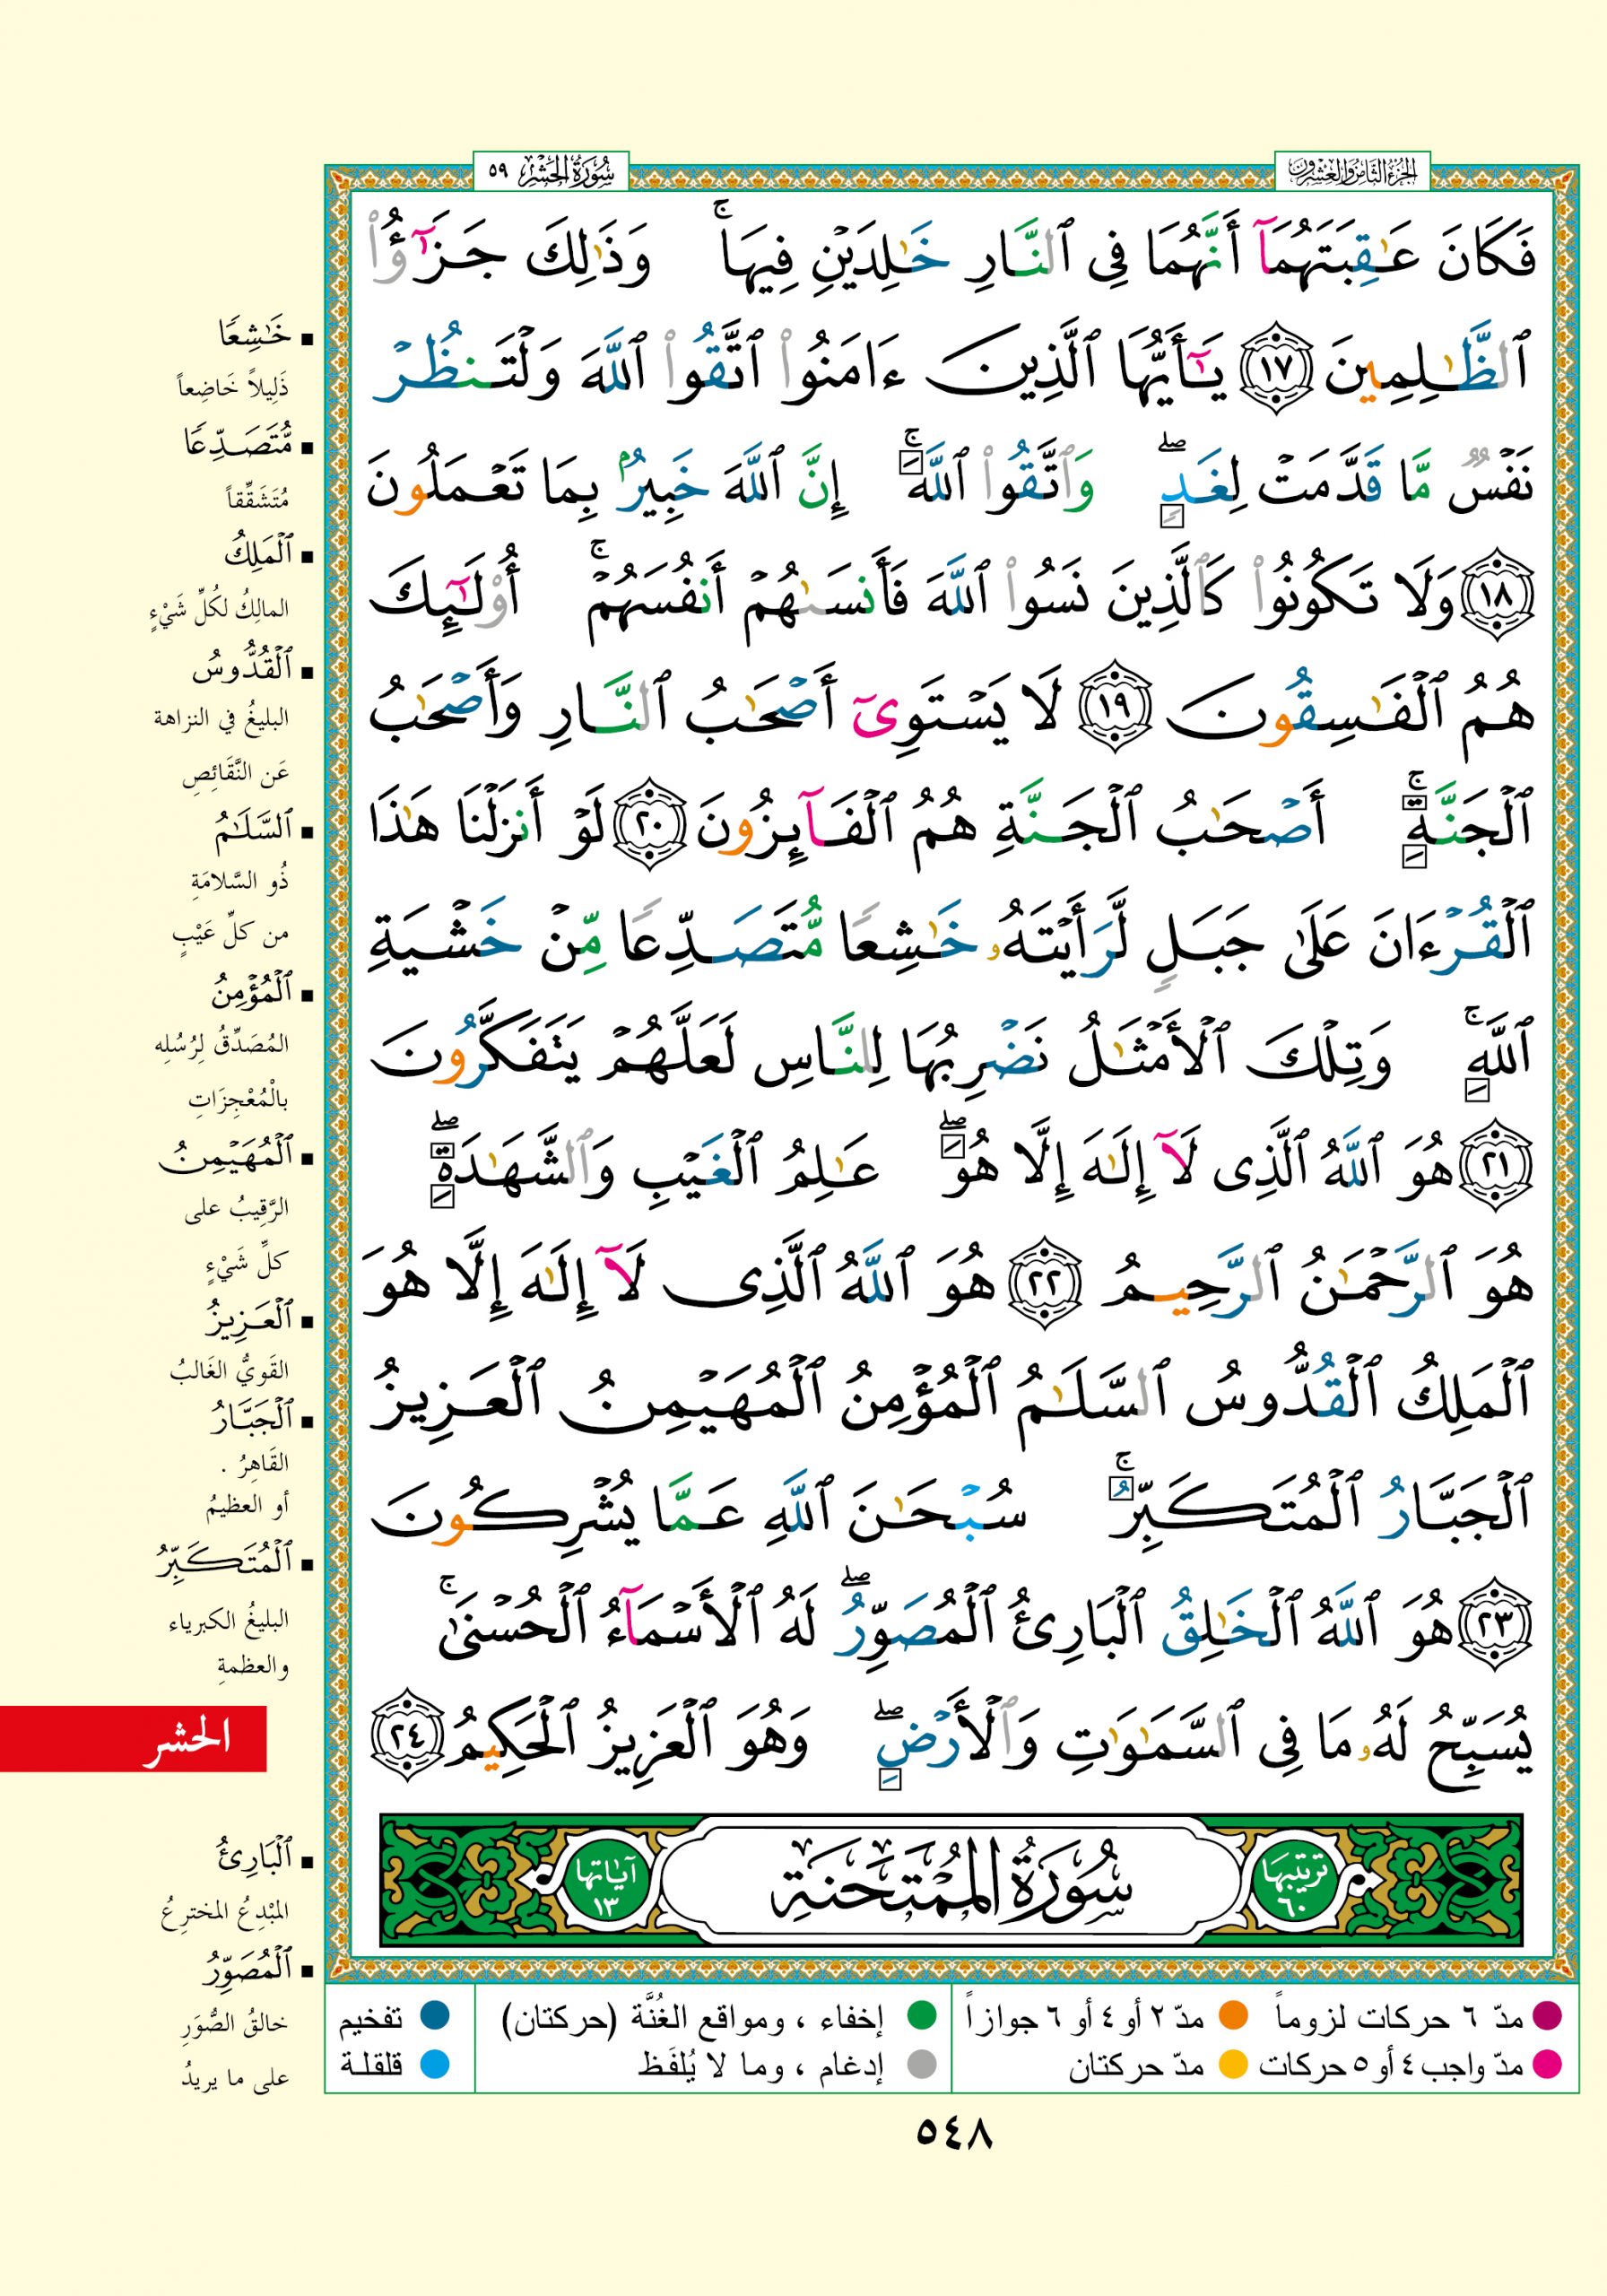 الجزء الثامن والعشرون
سُورَةُ الحَشْرِ ٥٩
فَكَانَ عَٰقِبَتَهُمَآ أَنَّهُمَا فِى ٱلنَّارِ خَٰلِدَيْنِ فِيهَا ۚ وَذَٰلِكَ جَزَٰٓؤُا۟
ٱلظَّٰلِمِينَ ١٧ يَٰٓأَيُّهَا ٱلَّذِينَ ءَامَنُوا۟ ٱتَّقُوا۟ ٱللَّهَ وَلْتَنظُرْ
نَفْسٌ مَّا قَدَّمَتْ لِغَدٍ ۖ وَٱتَّقُوا۟ ٱللَّهَ ۚ إِنَّ ٱللَّهَ خَبِيرٌۢ بِمَا تَعْمَلُونَ
١٨ وَلَا تَكُونُوا۟ كَٱلَّذِينَ نَسُوا۟ ٱللَّهَ فَأَنسَىٰهُمْ أَنفُسَهُمْ ۚ أُو۟لَٰٓئِكَ
هُمُ ٱلْفَٰسِقُونَ ١٩ لَا يَسْتَوِىٓ أَصْحَٰبُ ٱلنَّارِ وَأَصْحَٰبُ
ٱلْجَنَّةِ ۚ أَصْحَٰبُ ٱلْجَنَّةِ هُمُ ٱلْفَآئِزُونَ ٢٠ لَوْ أَنزَلْنَا هَٰذَا
ٱلْقُرْءَانَ عَلَىٰ جَبَلٍ لَّرَأَيْتَهُۥ خَٰشِعًا مُّتَصَدِّعًا مِّنْ خَشْيَةِ
ٱللَّهِ ۚ وَتِلْكَ ٱلْأَمْثَٰلُ نَضْرِبُهَا لِلنَّاسِ لَعَلَّهُمْ يَتَفَكَّرُونَ
٢١ هُوَ ٱللَّهُ ٱلَّذِى لَآ إِلَٰهَ إِلَّا هُوَ ۖ عَٰلِمُ ٱلْغَيْبِ وَٱلشَّهَٰدَةِ ۖ
هُوَ ٱلرَّحْمَٰنُ ٱلرَّحِيمُ ٢٢ هُوَ ٱللَّهُ ٱلَّذِى لَآ إِلَٰهَ إِلَّا هُوَ
ٱلْمَلِكُ ٱلْقُدُّوسُ ٱلسَّلَٰمُ ٱلْمُؤْمِنُ ٱلْمُهَيْمِنُ ٱلْعَزِيزُ
ٱلْجَبَّارُ ٱلْمُتَكَبِّرُ ۚ سُبْحَٰنَ ٱللَّهِ عَمَّا يُشْرِكُونَ
٢٣ هُوَ ٱللَّهُ ٱلْخَٰلِقُ ٱلْبَارِئُ ٱلْمُصَوِّرُ ۖ لَهُ ٱلْأَسْمَآءُ ٱلْحُسْنَىٰ ۚ
يُسَبِّحُ لَهُۥ مَا فِى ٱلسَّمَٰوَٰتِ وَٱلْأَرْضِ ۖ وَهُوَ ٱلْعَزِيزُ ٱلْحَكِيمُ ٢٤
ترتيبها ٦٠
سُورَةُ المُمْتَحنَةِ
آياتها ١٣
خَٰشِعًا
ذَلِيلاً خَاضِعاً
مُّتَصَدِّعًا
مُتَشَقِّقاً
ٱلْمَلِكُ
المالِكُ لكُلِّ شَيْءٍ
ٱلْقُدُّوسُ
البليغُ في النزاهة
عَن النَّقَائِصِ
ٱلسَّلَٰمُ
ذُو السَّلامَةِ
من كلِّ عَيْبٍ
ٱلْمُؤْمِنُ
المُصَدِّقُ لِرُسُلِه
بالْمُعْجِزَاتِ
ٱلْمُهَيْمِنُ
الرَّقِيبُ على
كلِّ شَيْءٍ
ٱلْعَزِيزُ
القَوِيُّ الغَالبُ
ٱلْجَبَّارُ
القَاهِرُ .
أو العظيمُ
ٱلْمُتَكَبِّرُ
البليغُ الكبرياء
والعظمةِ
الحشر
ٱلْبَارِئُ
المبْدِعُ المخترِعُ
ٱلْمُصَوِّرُ
خالقُ الصُّوَرِ
على ما يريدُ
مدّ ٦ حركات لزوماً
مدّ ٢ أو ٤ أو ٦ جوازاً
إخفاء ، ومواقع الغُنَّة (حركتان)
تفخيم
مدّ واجب ٤ أو ٥ حركات
مدّ حركتان
إدغام ، وما لا يُلفَظ
قلقلة
٥٤٨